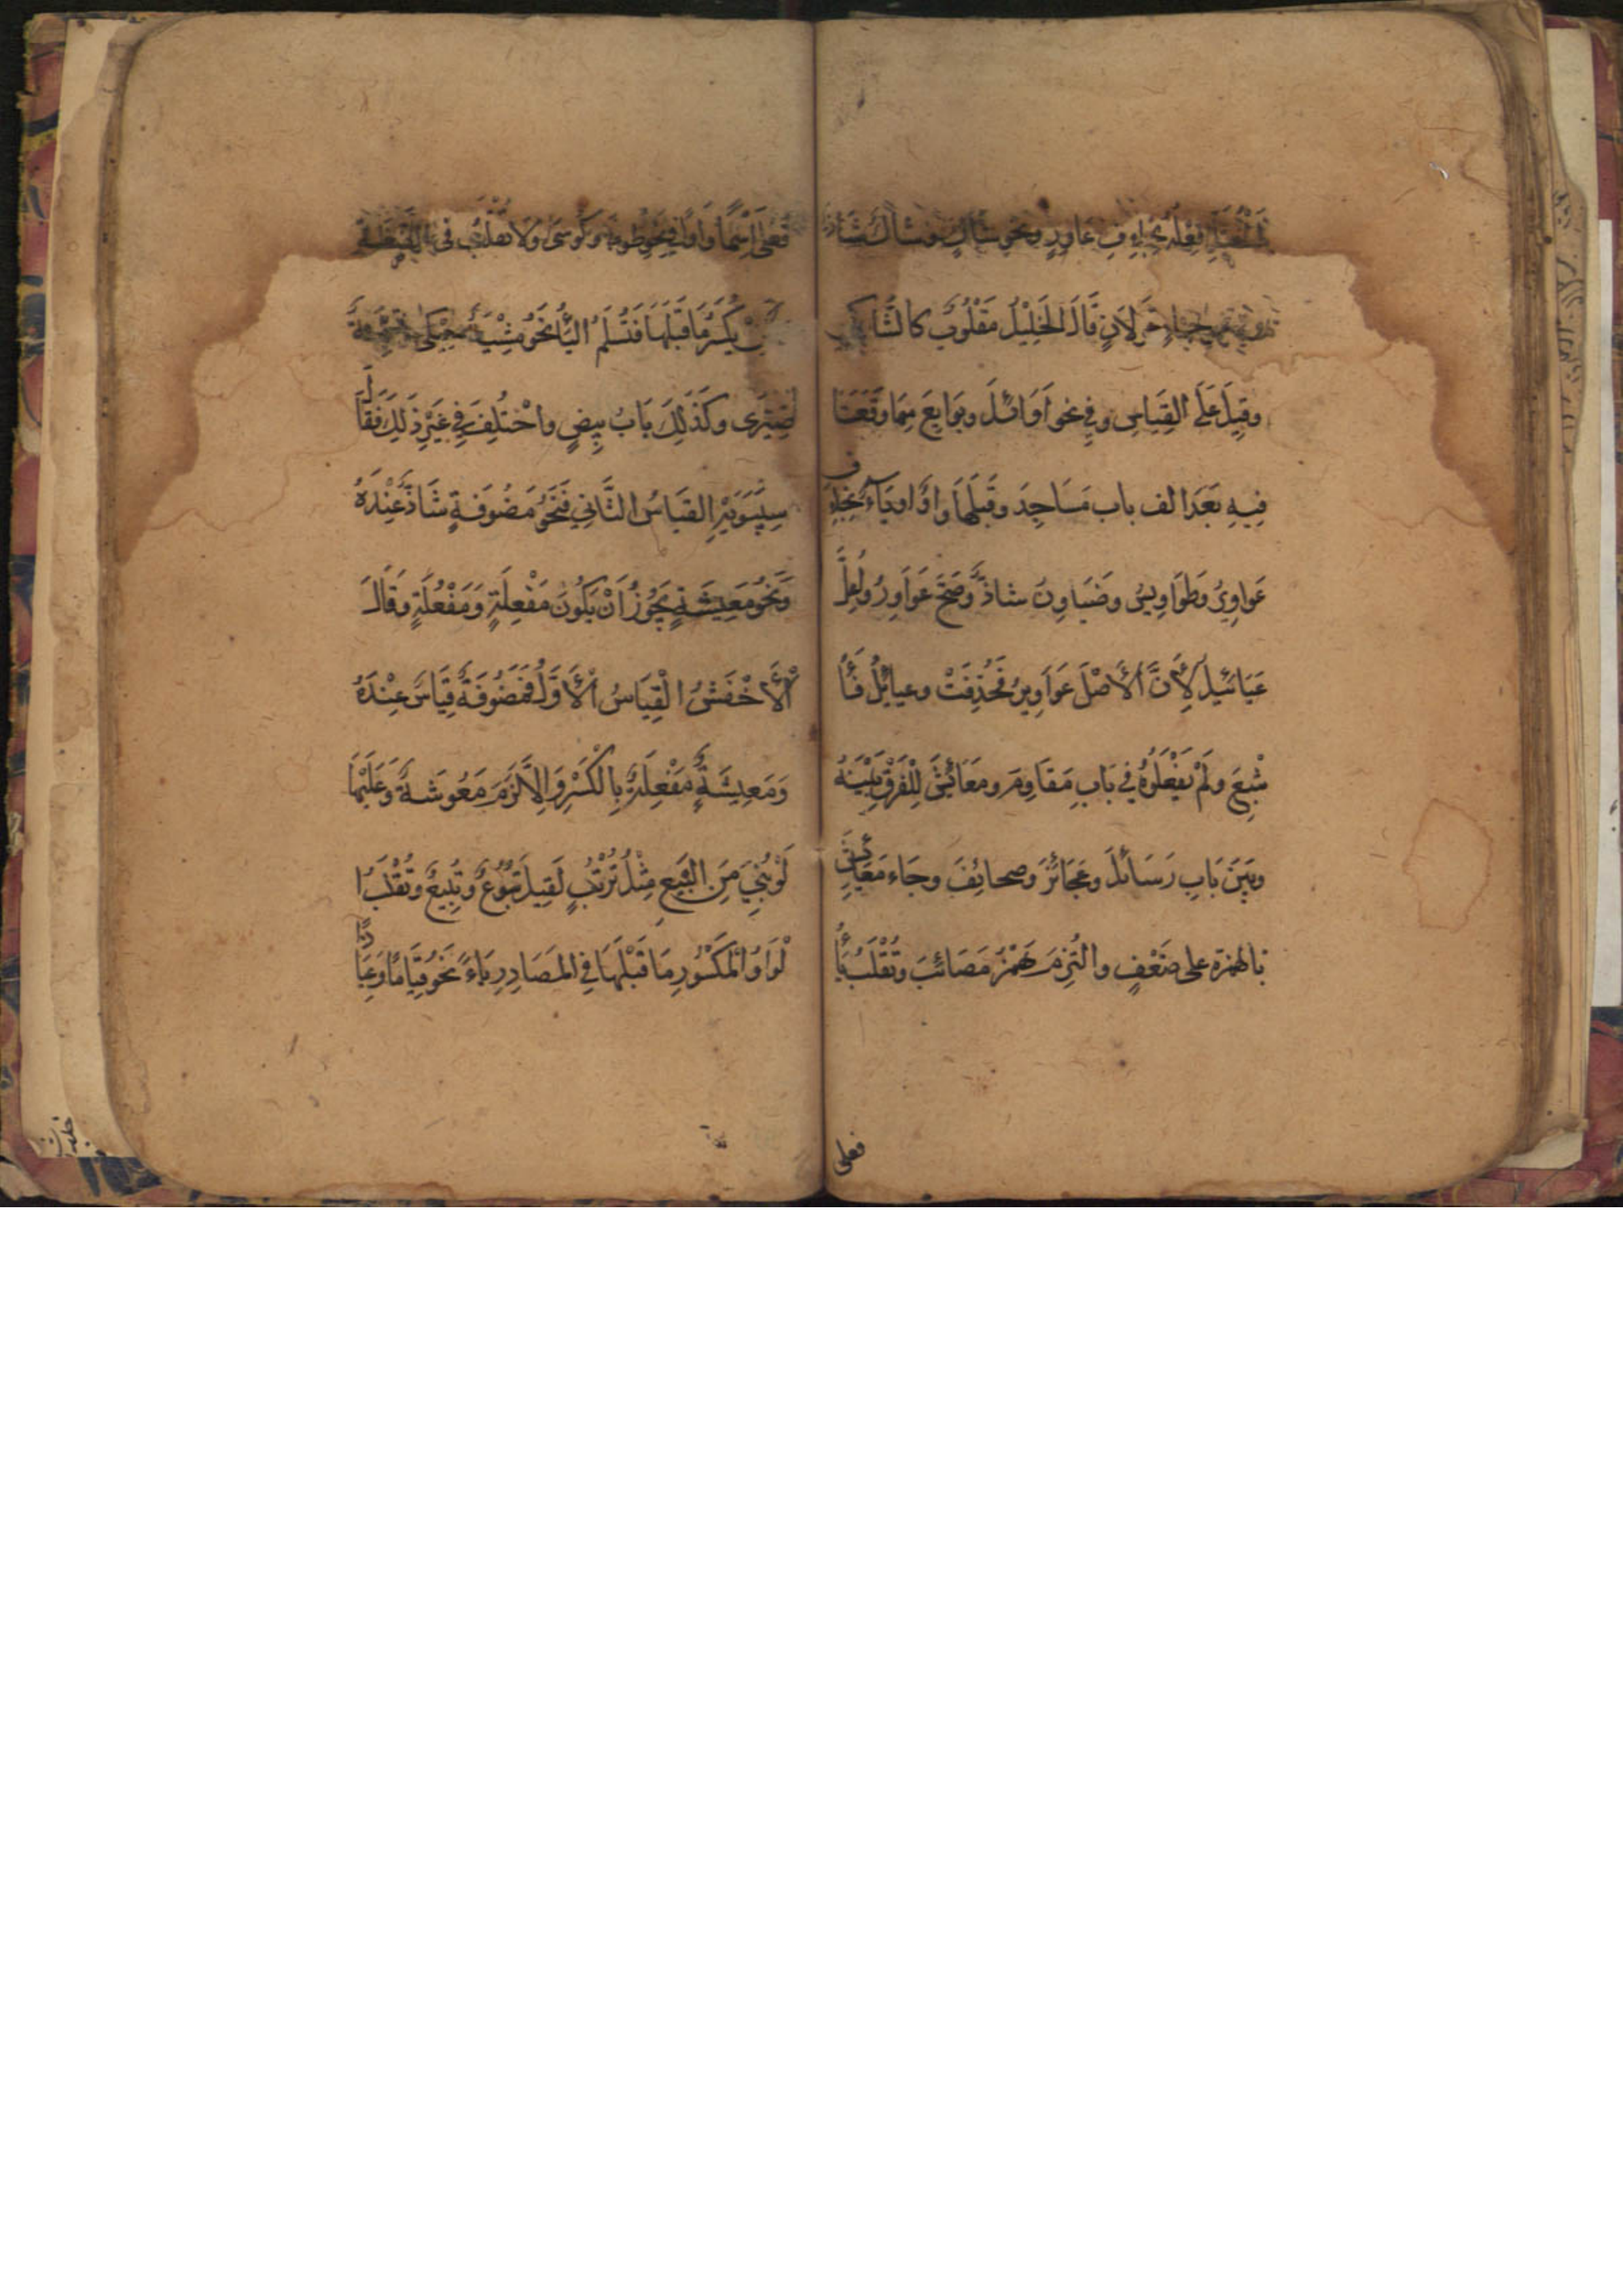 فِعْلُهُ بِخِلَافِ عَاوِرٍ ونَحْو شَاكٍ وشاك شَاذٌّ
قَالَ الخَلِيْلُ مَقْلُوبٌ كالشَّاكي
وقِيلَ عَلَى القِيَاسِ وفِي نحو اَوَائلَ وبَوَايعَ مِمَّا وقَعَتَا
فِيهِ بَعْدَ الف باب مَسَاجِدَ وقَبلَهَا واوٌ او يَاءٌ بخِلافِ
عَوَاوِيرَ وَطَوَاوِيسَ وضَيَاوِنَ شاذٌّ وَصَحَّ عَوَاوِرُ واُعِلَّ
عَيَائيلُ لِأَنَّ الأَصْلَ عَوَاوِيرُ فَحُذِفَتْ وعيائلُ فَاُ
شْبِعَ ولَمْ يَفْعَلُوهُ فِي بَابِ مَقَاوِمَ ومَعَائِشَ لِلْفَرْقِ بَيْنَهُ
وبَيْنَ بَابِ رَسَائلَ وعَجَائزَ وَصحائِفَ وجَاء مَعَائِشَ
بالهمزة على ضَعْفٍ والتُزِمَ هَمْزُ مَصَائبَ وتُقْلَبُ يَاُ
فعلى
فُعْلَى اِسْمًا وَاوًا فِي نَحْوِ طُوبى وكُوسَى ولَا تُقْلَبُ فى الصِّفَةِ
يُكْسَرُ مَا قَبْلَهَا فَتُسْلَمُ اليَاُ نَحْوُ مِشْيَةٌ حِيْكى
ضِيْزَى وكَذٰلِكَ بَابُ بِيضٍ واخْتُلِفَ فِي غَيْرِ ذٰلِكَ فَقَالَ
سِيْبَوَيْهِ القِيَاسُ الثَّانِي فَنَحْوُ مَضُوفَةٍ شَاذٌّ عِنْدَهُ
وَنَحْوُ مَعِيشَةٍ يَجُوزُ اَنْ يَكُونَ مَفْعِلَةٍ وَمَفْعُلَةٍ وقَالَ
الْأَخْفَشُ الْقِيَاسُ الْأَوَّلُ فمَضُوفَةٌ قِيَاسٌ عِنْدَهُ
وَمَعِيشَةٌ مَفْعِلَةٌ بِالكَسْرِ وَاِلَّا لَزِمَ مَعُوشَةٌ وَعَلَيْهِمَا
لَوْ بُنِيَ مِنَ البَيْعِ مِثْلُ تُرْتُبٍ لَقِيلَ تُبُوعٌ وتُبِيعٌ وتُقْلَبُ ا
لْوَاوُ الْمَكْسُورِ مَا قَبْلَهَا فِي المصَادِرِ يَاءً نَحْوُ قِيَامًا وعِيَاذًا